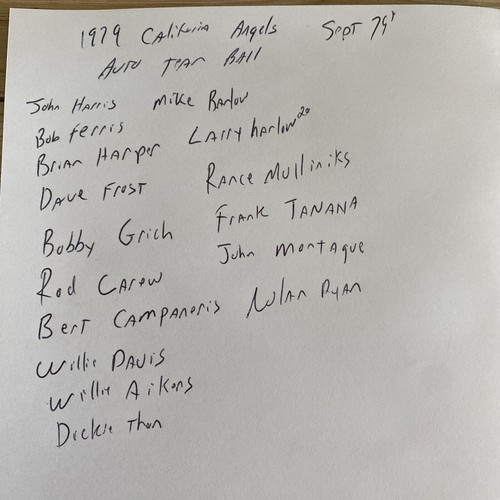 1979 California Angels Sept 79'
Auto Team Ball
John Harris Mike Barlow
Bob Ferris
Brian Harper Larry Harlow 20
Dave Frost Rance Mulliniks
Bobby Grich Frank Tanana
Rod Carew John Montague
Bert Campaneris Nolan Ryan
Willie Davis
Willie Aikens
Dickie Thon